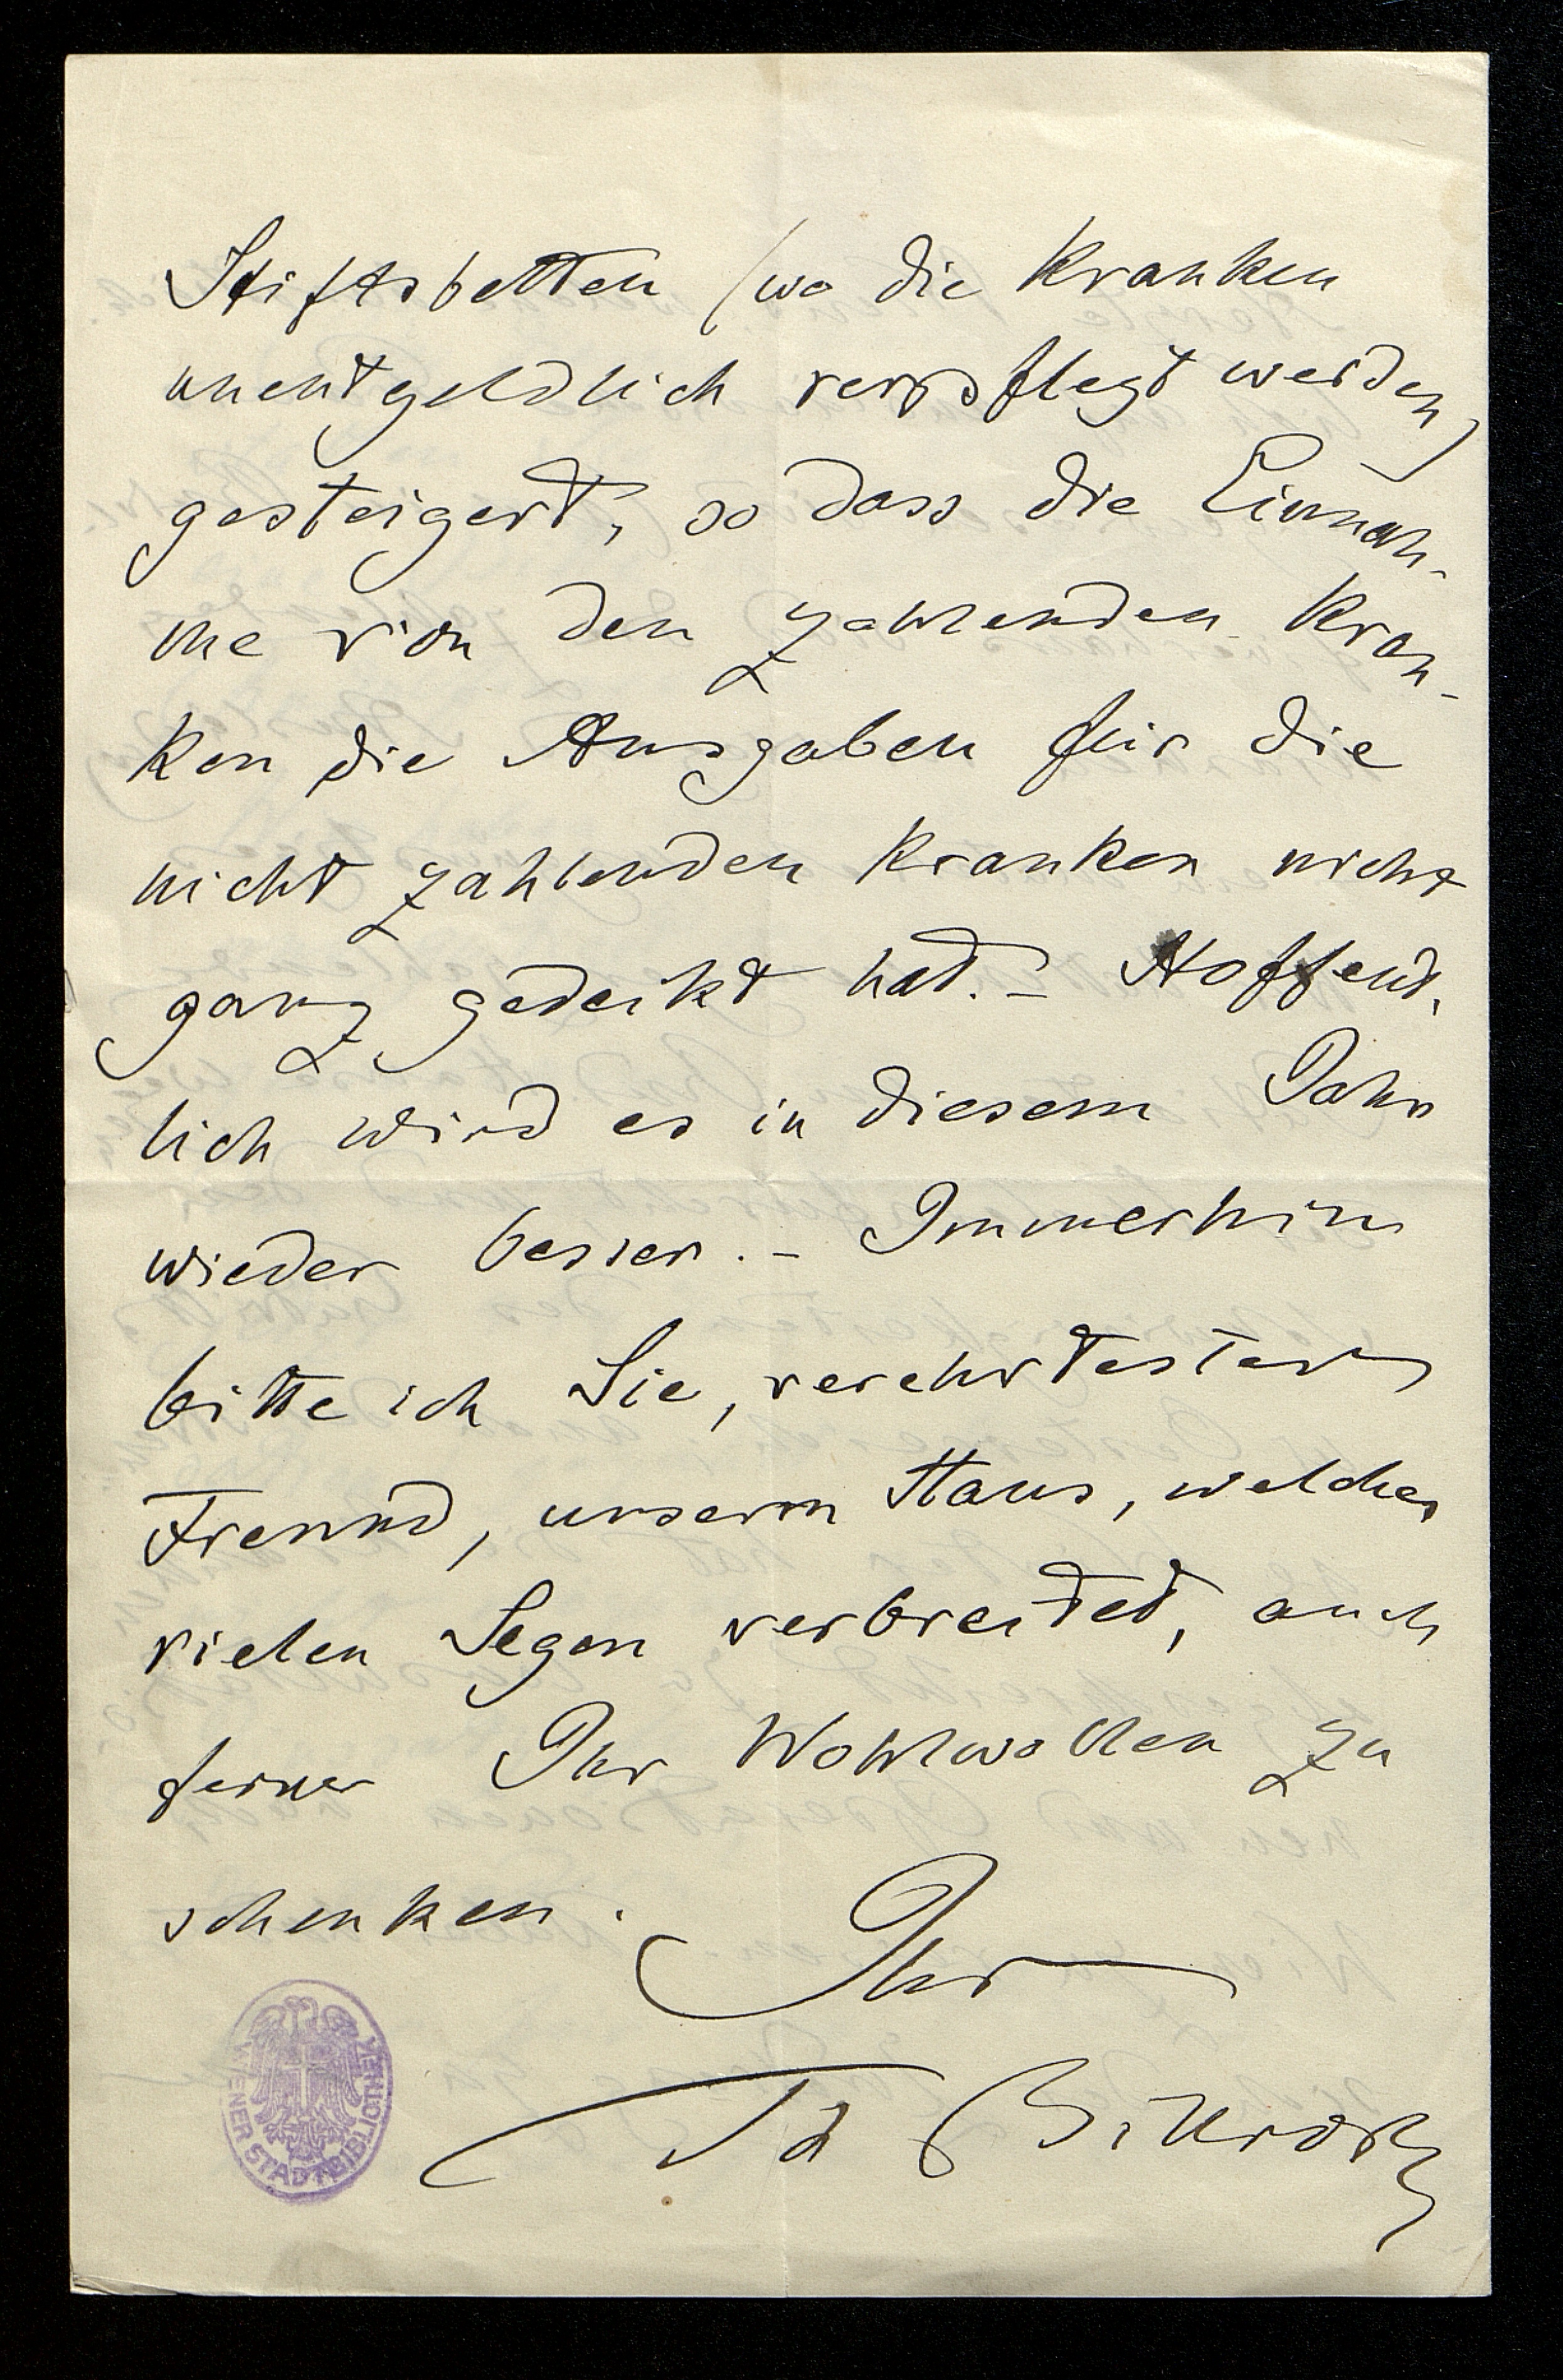 Stiftsbetten (wo die Kranken
unentgeldlich verpflegt werden)
gesteigert, so dass die Einnah-
me von den zahlenden Kran-
ken die Ausgaben für die
nicht zahlenden Kranken nicht
ganz gedeckt hat. – Hoffent-
lich wird es in diesem Jahr
wieder besser. – Immerhin
bitte ich Sie, verehrtester
Freund, unserm Haus, welches
vielen Segen verbreitet, auch
ferner Ihr Wohlwollen zu
schenken.
Ihr
Th Billroth
WIENER STADTBIBLIOTHEK